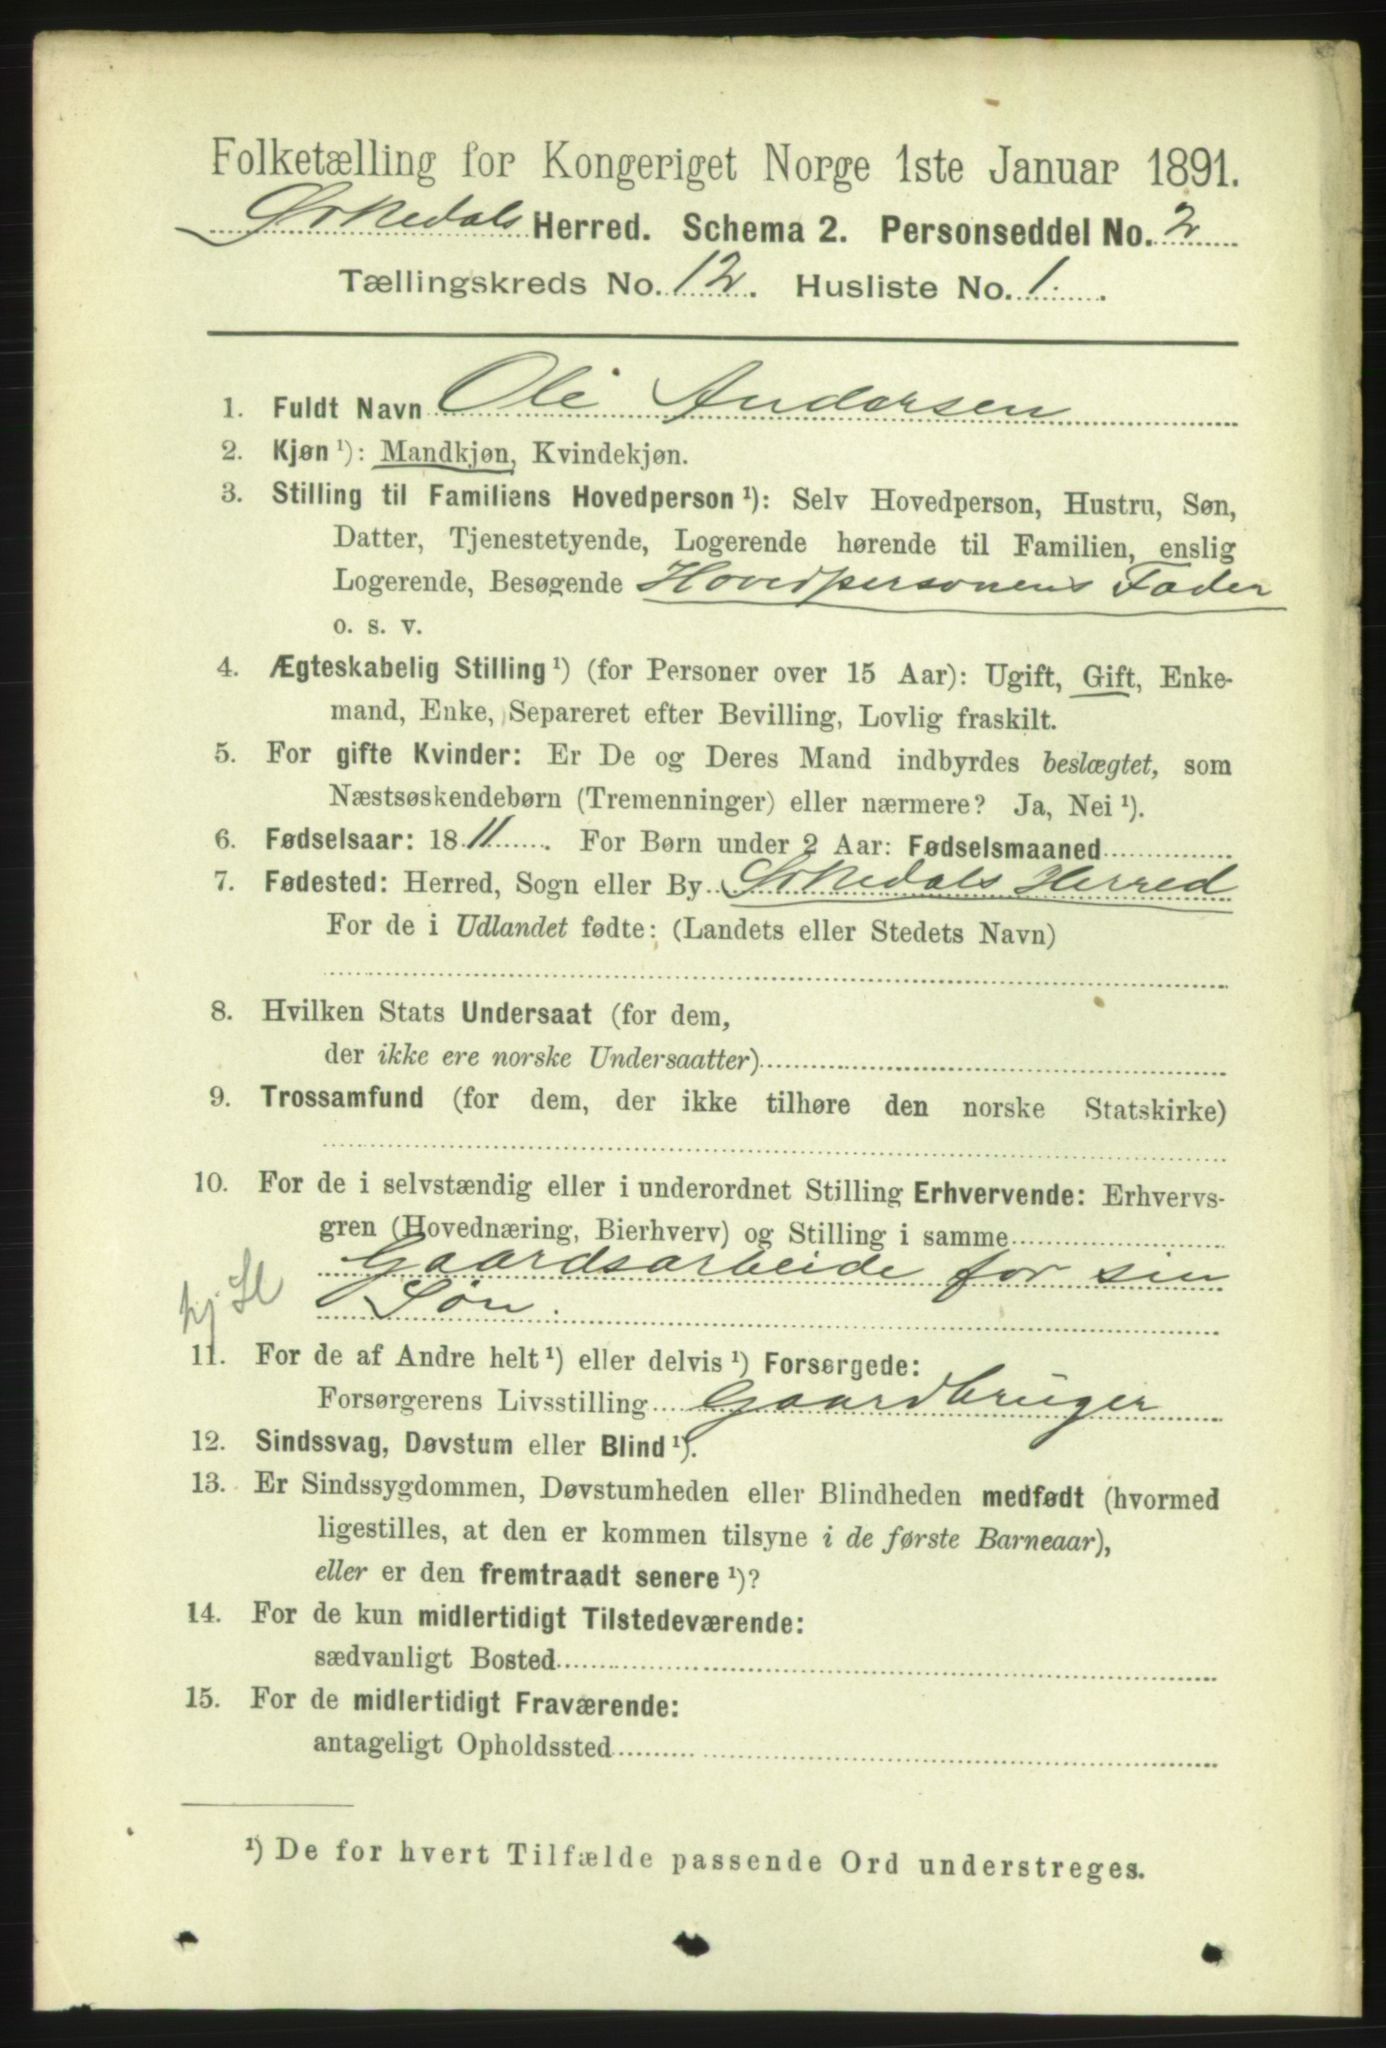 Folketælling for Kongeriget Norge 1ste Januar 1891.
Orkedals Herred. Schema 2. Personseddel No. 2
Tællingskreds No. 12. Husliste No. 1.
1. Fuldt Navn Ole Andersen
2. Kjøn ¹): Mandkjøn, Kvindekjøn.
3. Stilling til Familiens Hovedperson ¹): Selv Hovedperson, Hustru, Søn,
Datter, Tjenestetyende, Logerende hørende til Familien, enslig
Logerende, Besøgende Hovedpersonens Fader
o. s. v.
4. Ægteskabelig Stilling ¹) (for Personer over 15 Aar): Ugift, Gift, Enke-
mand, Enke, Separeret efter Bevilling, Lovlig fraskilt.
5. For gifte Kvinder: Er De og Deres Mand indbyrdes beslægtet, som
Næstsøskendebørn (Tremenninger) eller nærmere? Ja, Nei ¹).
6. Fødselsaar: 1811. For Børn under 2 Aar: Fødselsmaaned
7. Fødested: Herred, Sogn eller By Orkedals Herred
For de i Udlandet fødte: (Landets eller Stedets Navn)
8. Hvilken Stats Undersaat (for dem,
der ikke ere norske Undersaatter)
9. Trossamfund (for dem, der ikke tilhøre den norske Statskirke)
10. For de i selvstændig eller i underordnet Stilling Erhvervende: Erhvervs-
gren (Hovednæring, Bierhverv) og Stilling i samme
Gaardsarbeide for sin
hj. Sl Søn.
11. For de af Andre helt ¹) eller delvis ¹) Forsørgede:
Forsørgerens Livsstilling Gaardbruger
12. Sindssvag, Døvstum eller Blind ¹).
13. Er Sindssygdommen, Døvstumheden eller Blindheden medfødt (hvormed
ligestilles, at den er kommen tilsyne i de første Barneaar),
eller er den fremtraadt senere ¹)?
14. For de kun midlertidigt Tilstedeværende:
sædvanligt Bosted
15. For de midlertidigt Fraværende:
antageligt Opholdssted
¹) De for hvert Tilfælde passende Ord understreges.